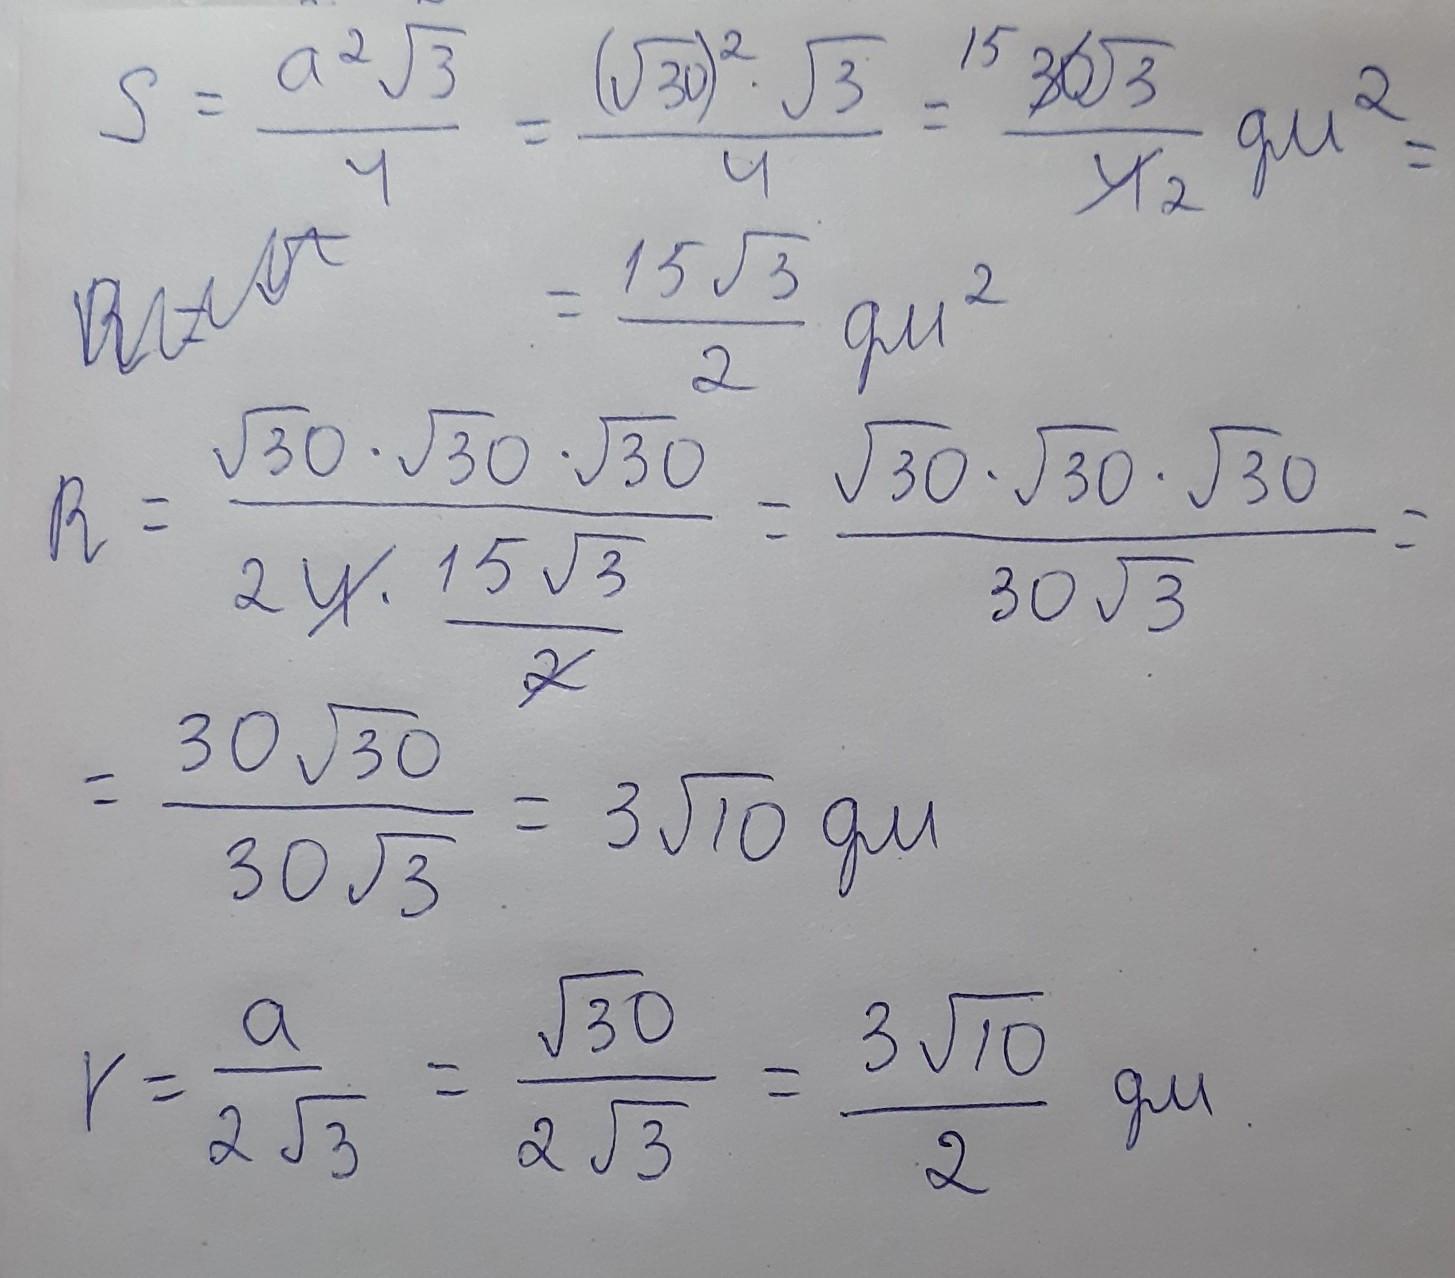 S = a²√3/4 = (√30)²·√3/4 = 15 30√3/4 2 дм² =
= 15√3/2 дм²
R = √30·√30·√30/2 4·15√3/2 = √30·√30·√30/30√3 =
= 30√30/30√3 = 3√10 дм
r = a/2√3 = √30/2√3 = 3√10/2 дм